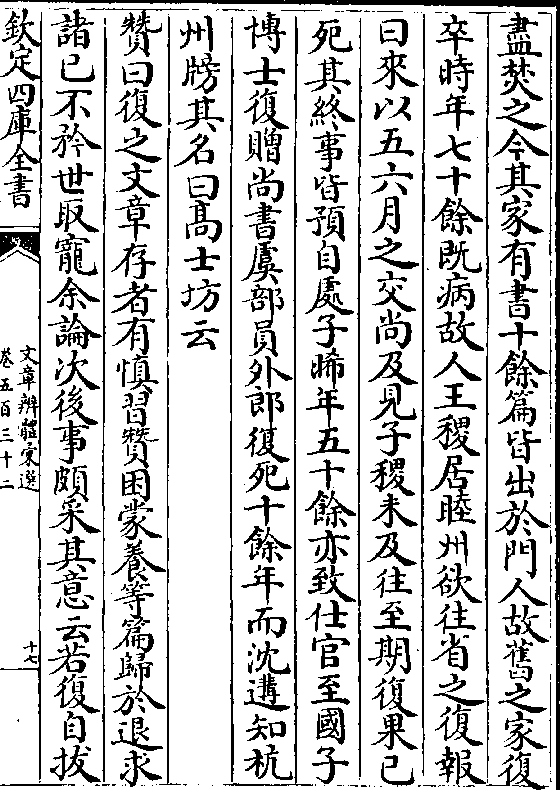 盡焚之今其家有書十餘篇皆出於門人故舊之家復
卒時年七十餘既病故人王稷居睦州欲往省之復報
曰來以五六月之交尚及見子稷未及往至期復果已
死其終事皆預自處子晞年五十餘亦致仕官至國子
博士復贈尚書虞部員外郎復死十餘年而沈遘知杭
州牓其名曰髙士坊云
贊曰復之文章存者有慎習贊困蒙養等篇歸於退求
諸已不矜世取寵余論次後事頗采其意云若復自拔
欽定四庫全書
文章辨體彚選
卷五百三十二
十七